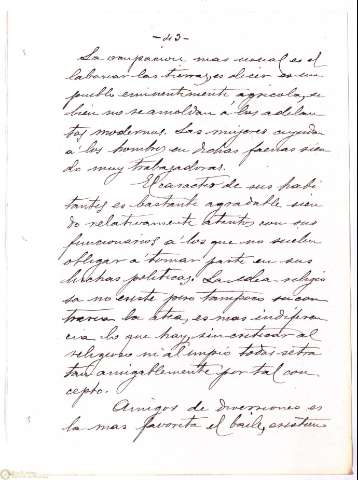 -43-
La ocupación mas usual es el
laborear las tierras, es decir es un
pueblo eminentimente agricola, si
bien no se amoldan á los adelan
tos modernos. Las mujeres ayudan
á los hombres en dichas faenas sien
do muy trabajadoras.
El caracter de sus habi
tantes es bastante agradable sien
do relativamente atentos con sus
funcionarios á los que no suelen
obligar á tomar parte en sus
luchas politicas. La idea religio
sa no existe pero tampoco su con
traria la atea, es mas indiferen
cia lo que hay, sin criticar al
religioso ni al impio todos se tra
tan amigablemente por tal con
cepto.
Amigos de diversiones es
la mas favorita el baile, existiendo